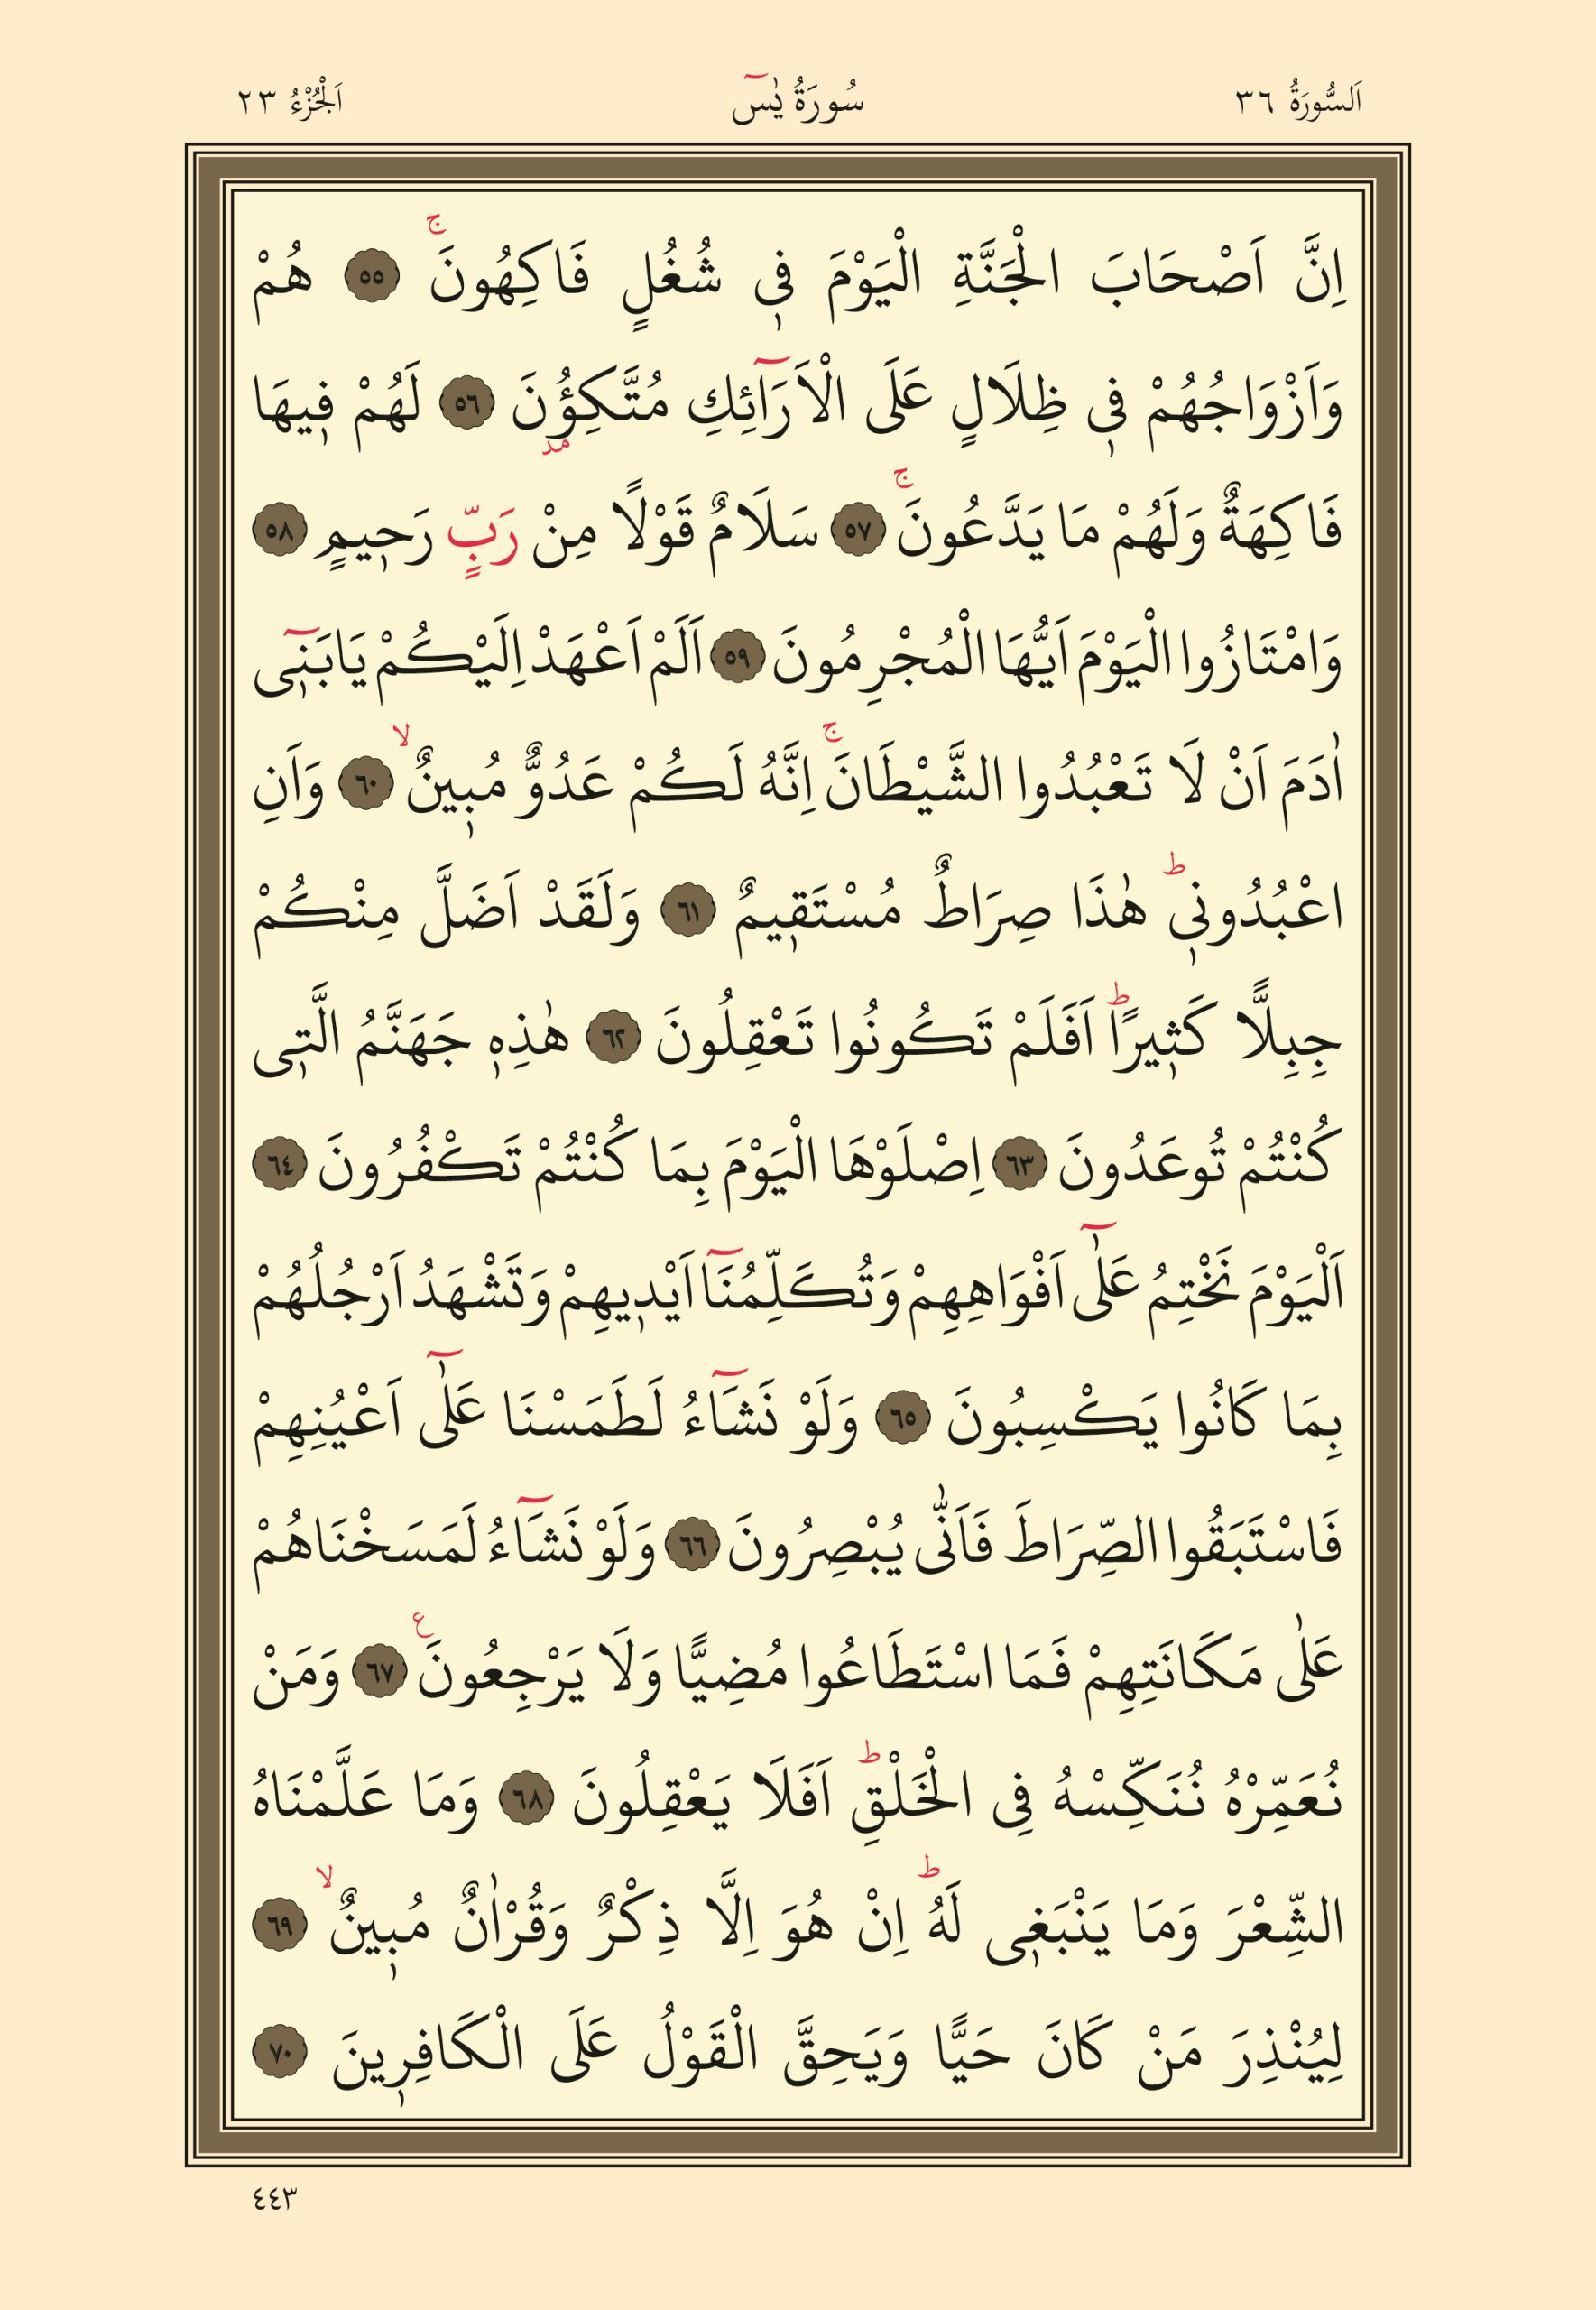 اَلسُّورَةُ ٣٦ سُورَةُ يٰسٓ اَلْجُزْءُ ٢٣
اِنَّ اَصْحَابَ الْجَنَّةِ الْيَوْمَ فٖي شُغُلٍ فَاكِهُونَۚ ٥٥ هُمْ
وَاَزْوَاجُهُمْ فٖي ظِلَالٍ عَلَى الْاَرَٓائِكِ مُتَّكِؤُ۫نَ ٥٦ لَهُمْ فٖيهَا
فَاكِهَةٌ وَلَهُمْ مَا يَدَّعُونَۚ ٥٧ سَلَامٌ قَوْلًا مِنْ رَبٍّ رَحٖيمٍ ٥٨
وَامْتَازُوا الْيَوْمَ اَيُّهَا الْمُجْرِمُونَ ٥٩ اَلَمْ اَعْهَدْ اِلَيْكُمْ يَابَنٖٓي
اٰدَمَ اَنْ لَا تَعْبُدُوا الشَّيْطَانَۚ اِنَّهُ لَكُمْ عَدُوٌّ مُبٖينٌۙ ٦٠ وَاَنِ
اعْبُدُونٖيؕ هٰذَا صِرَاطٌ مُسْتَقٖيمٌ ٦١ وَلَقَدْ اَضَلَّ مِنْكُمْ
جِبِلًّا كَثٖيرًاؕ اَفَلَمْ تَكُونُوا تَعْقِلُونَ ٦٢ هٰذِهٖ جَهَنَّمُ الَّتٖي
كُنْتُمْ تُوعَدُونَ ٦٣ اِصْلَوْهَا الْيَوْمَ بِمَا كُنْتُمْ تَكْفُرُونَ ٦٤
اَلْيَوْمَ نَخْتِمُ عَلٰٓى اَفْوَاهِهِمْ وَتُكَلِّمُنَٓا اَيْدٖيهِمْ وَتَشْهَدُ اَرْجُلُهُمْ
بِمَا كَانُوا يَكْسِبُونَ ٦٥ وَلَوْ نَشَٓاءُ لَطَمَسْنَا عَلٰٓى اَعْيُنِهِمْ
فَاسْتَبَقُوا الصِّرَاطَ فَاَنّٰى يُبْصِرُونَ ٦٦ وَلَوْ نَشَٓاءُ لَمَسَخْنَاهُمْ
عَلٰى مَكَانَتِهِمْ فَمَا اسْتَطَاعُوا مُضِيًّا وَلَا يَرْجِعُونَࣖ ٦٧ وَمَنْ
نُعَمِّرْهُ نُنَكِّسْهُ فِي الْخَلْقِؕ اَفَلَا يَعْقِلُونَ ٦٨ وَمَا عَلَّمْنَاهُ
الشِّعْرَ وَمَا يَنْبَغٖي لَهُؕ اِنْ هُوَ اِلَّا ذِكْرٌ وَقُرْاٰنٌ مُبٖينٌۙ ٦٩
لِيُنْذِرَ مَنْ كَانَ حَيًّا وَيَحِقَّ الْقَوْلُ عَلَى الْكَافِرٖينَ ٧٠
٤٤٣